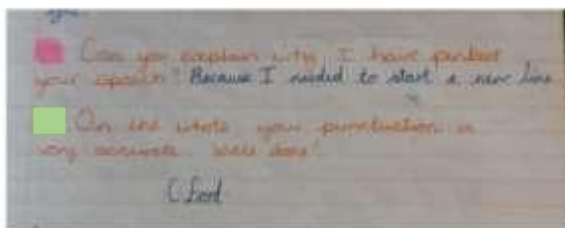 Can you explain why I have pinked
your speech? Because I needed to start a new line
On the whole your punctuation is
very accurate. Well done!